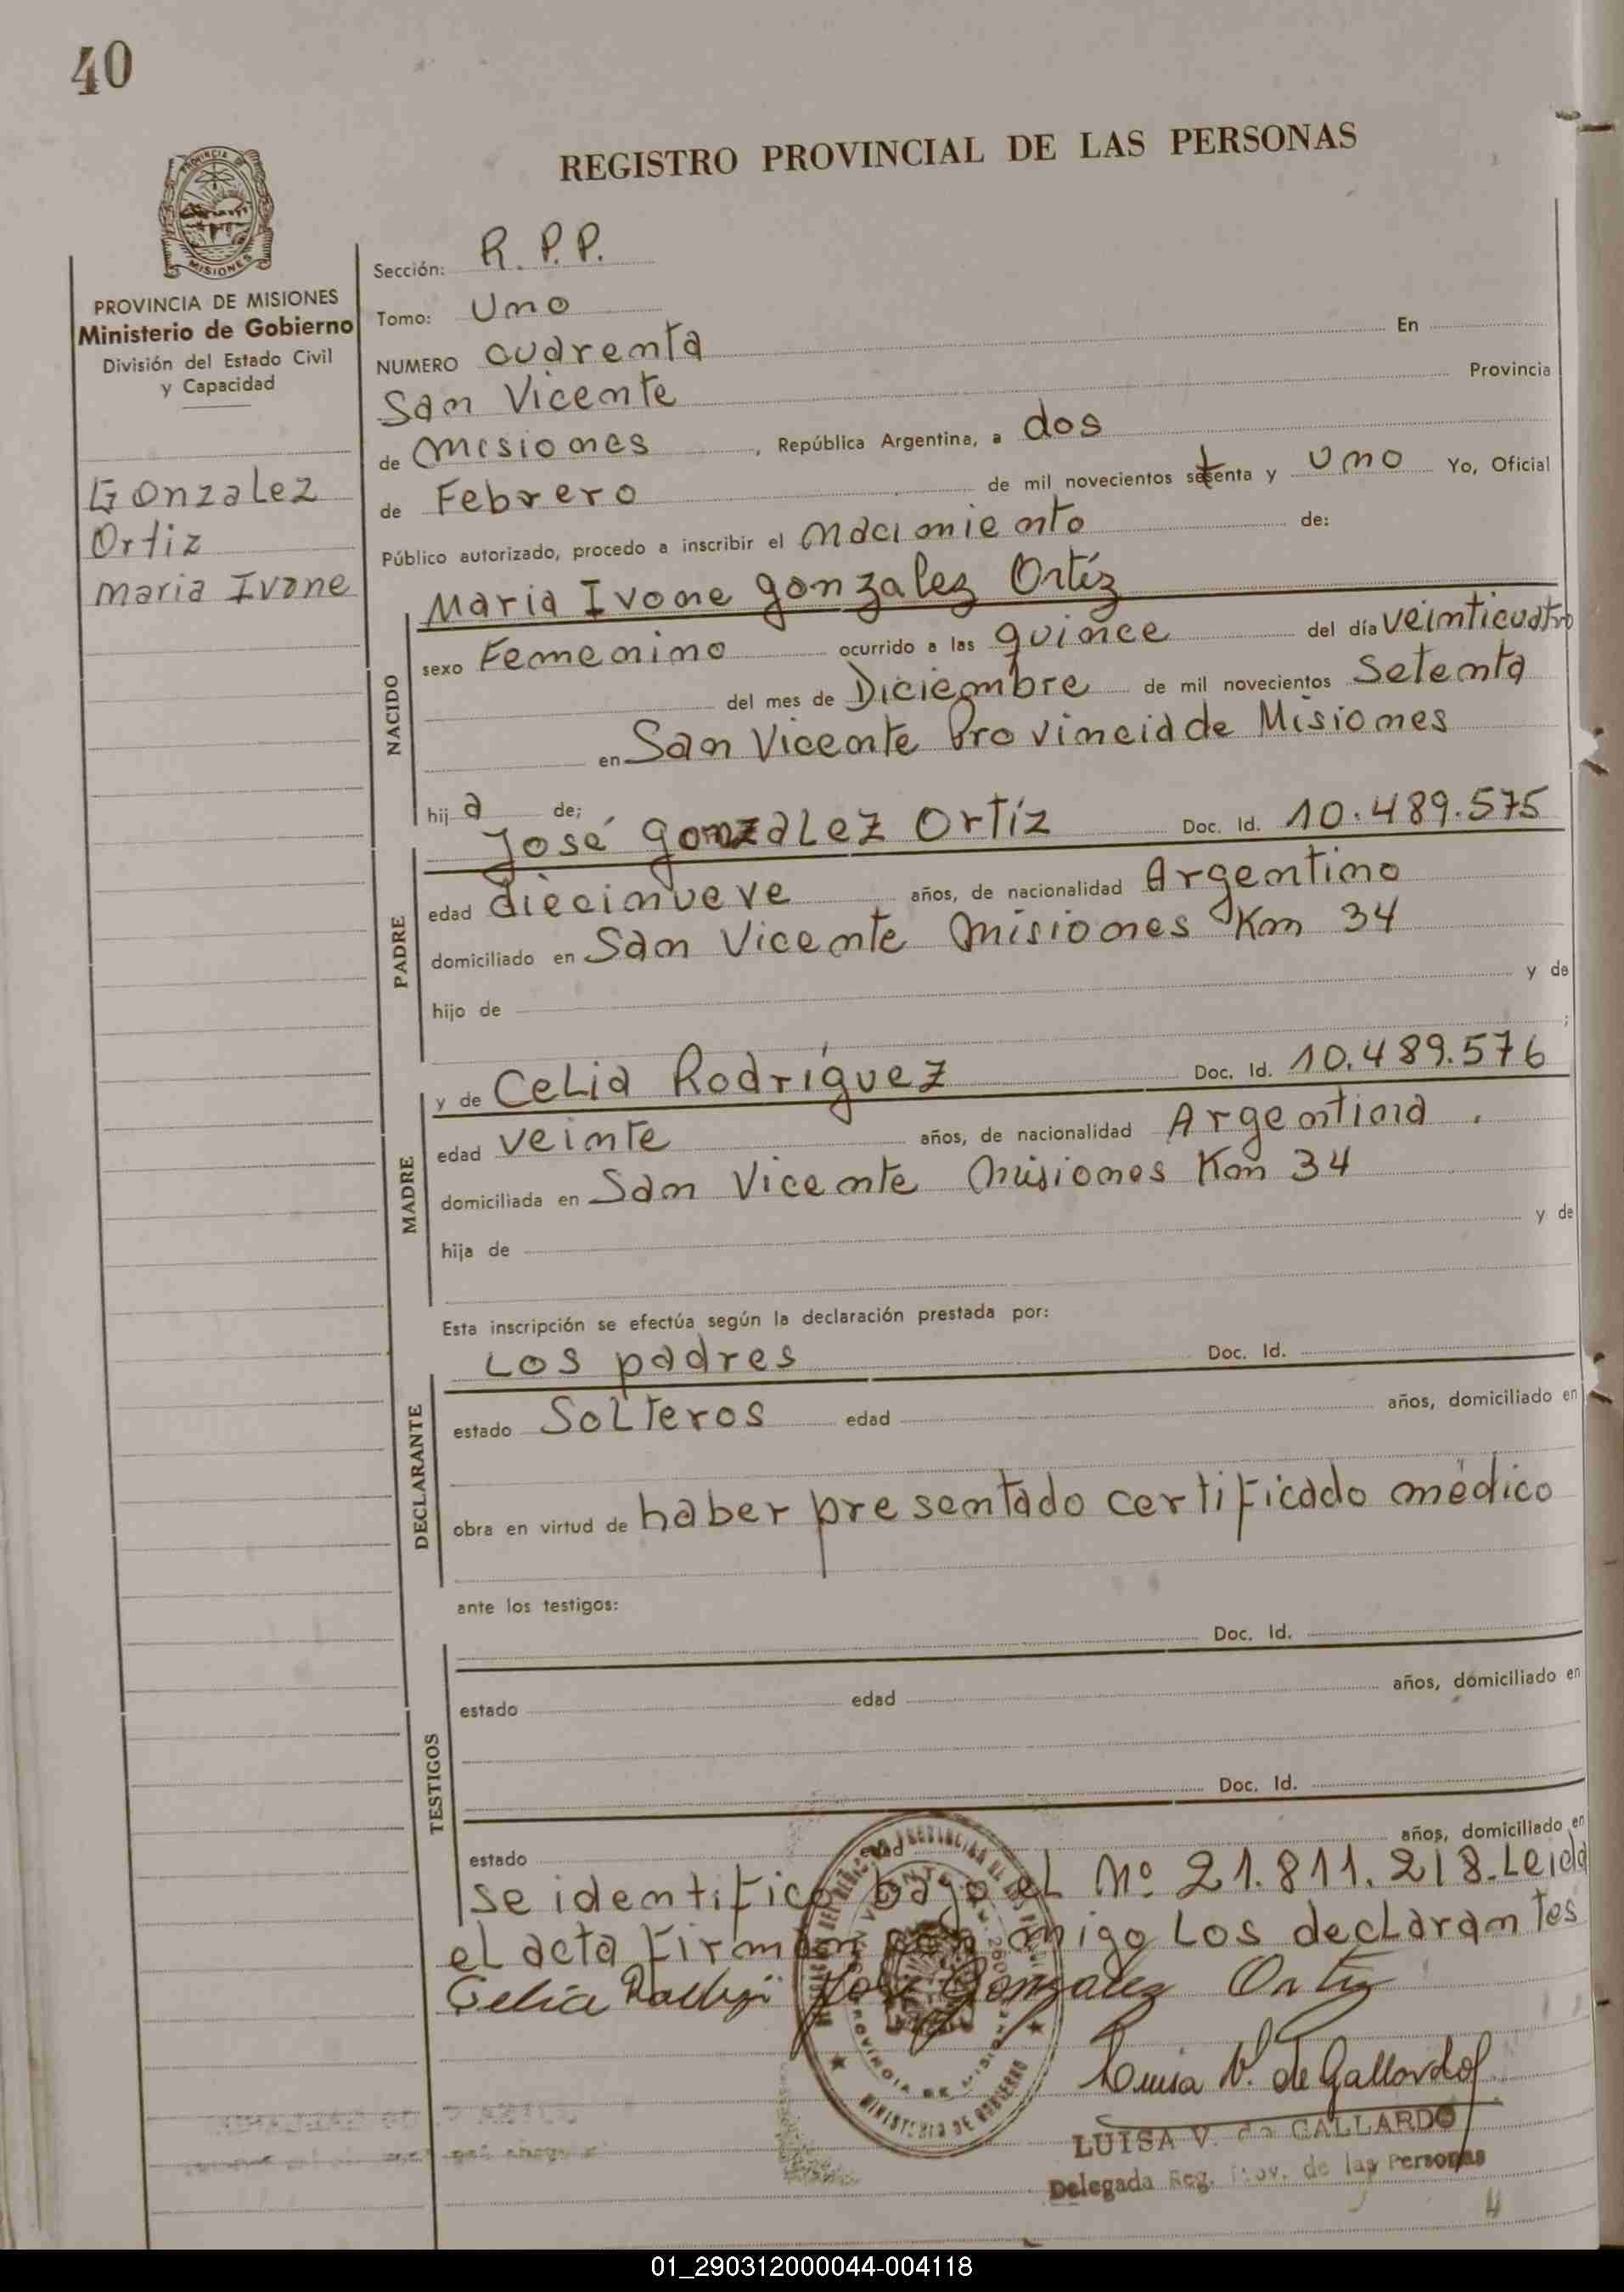 40
REGISTRO PROVINCIAL DE LAS PERSONAS
PROVINCIA DE MISIONES
Ministerio de Gobierno
División del Estado Civil
y Capacidad
Gonzalez
Ortiz
maria Ivone
Sección: R.P.P.
Tomo: Uno
NUMERO cuarenta En
San Vicente Provincia
de misiones, República Argentina, a dos
de Febrero de mil novecientos setenta y uno Yo, Oficial
Público autorizado, procedo a inscribir el nacimiento de:
Maria Ivone gonzalez Ortíz
NACIDO
sexo Femenino ocurrido a las quince del día veinticuatro
del mes de Diciembre de mil novecientos setenta
en San Vicente Provincia de Misiones
hij a de;
José gonzalez Ortíz Doc. Id. 10.489.575
PADRE
edad diecinueve años, de nacionalidad Argentino
domiciliado en San Vicente misiones Km 34
hijo de y de
;
y de Celia Rodríguez Doc. Id. 10.489.576
MADRE
edad veinte años, de nacionalidad Argentina.
domiciliada en San Vicente misiones Km 34
hija de y de
Esta inscripción se efectúa según la declaración prestada por:
Los padres Doc. Id.
DECLARANTE
estado Solteros edad años, domiciliado en
obra en virtud de haber presentado certificado médico
ante los testigos:
Doc. Id.
TESTIGOS
estado edad años, domiciliado en
Doc. Id.
estado edad años, domiciliado en
se identifica bajo el Nº 21.811.218. Leida
el acta firman con migo Los declarantes
Celia José Gonzalez Ortiz
PROVINCIA DE MISIONES
MINISTERIO DE GOBIERNO
Luisa V. de Gallardo
LUISA V. de GALLARDO
Delegada Reg. Prov. de las Personas
4
01_290312000044-004118